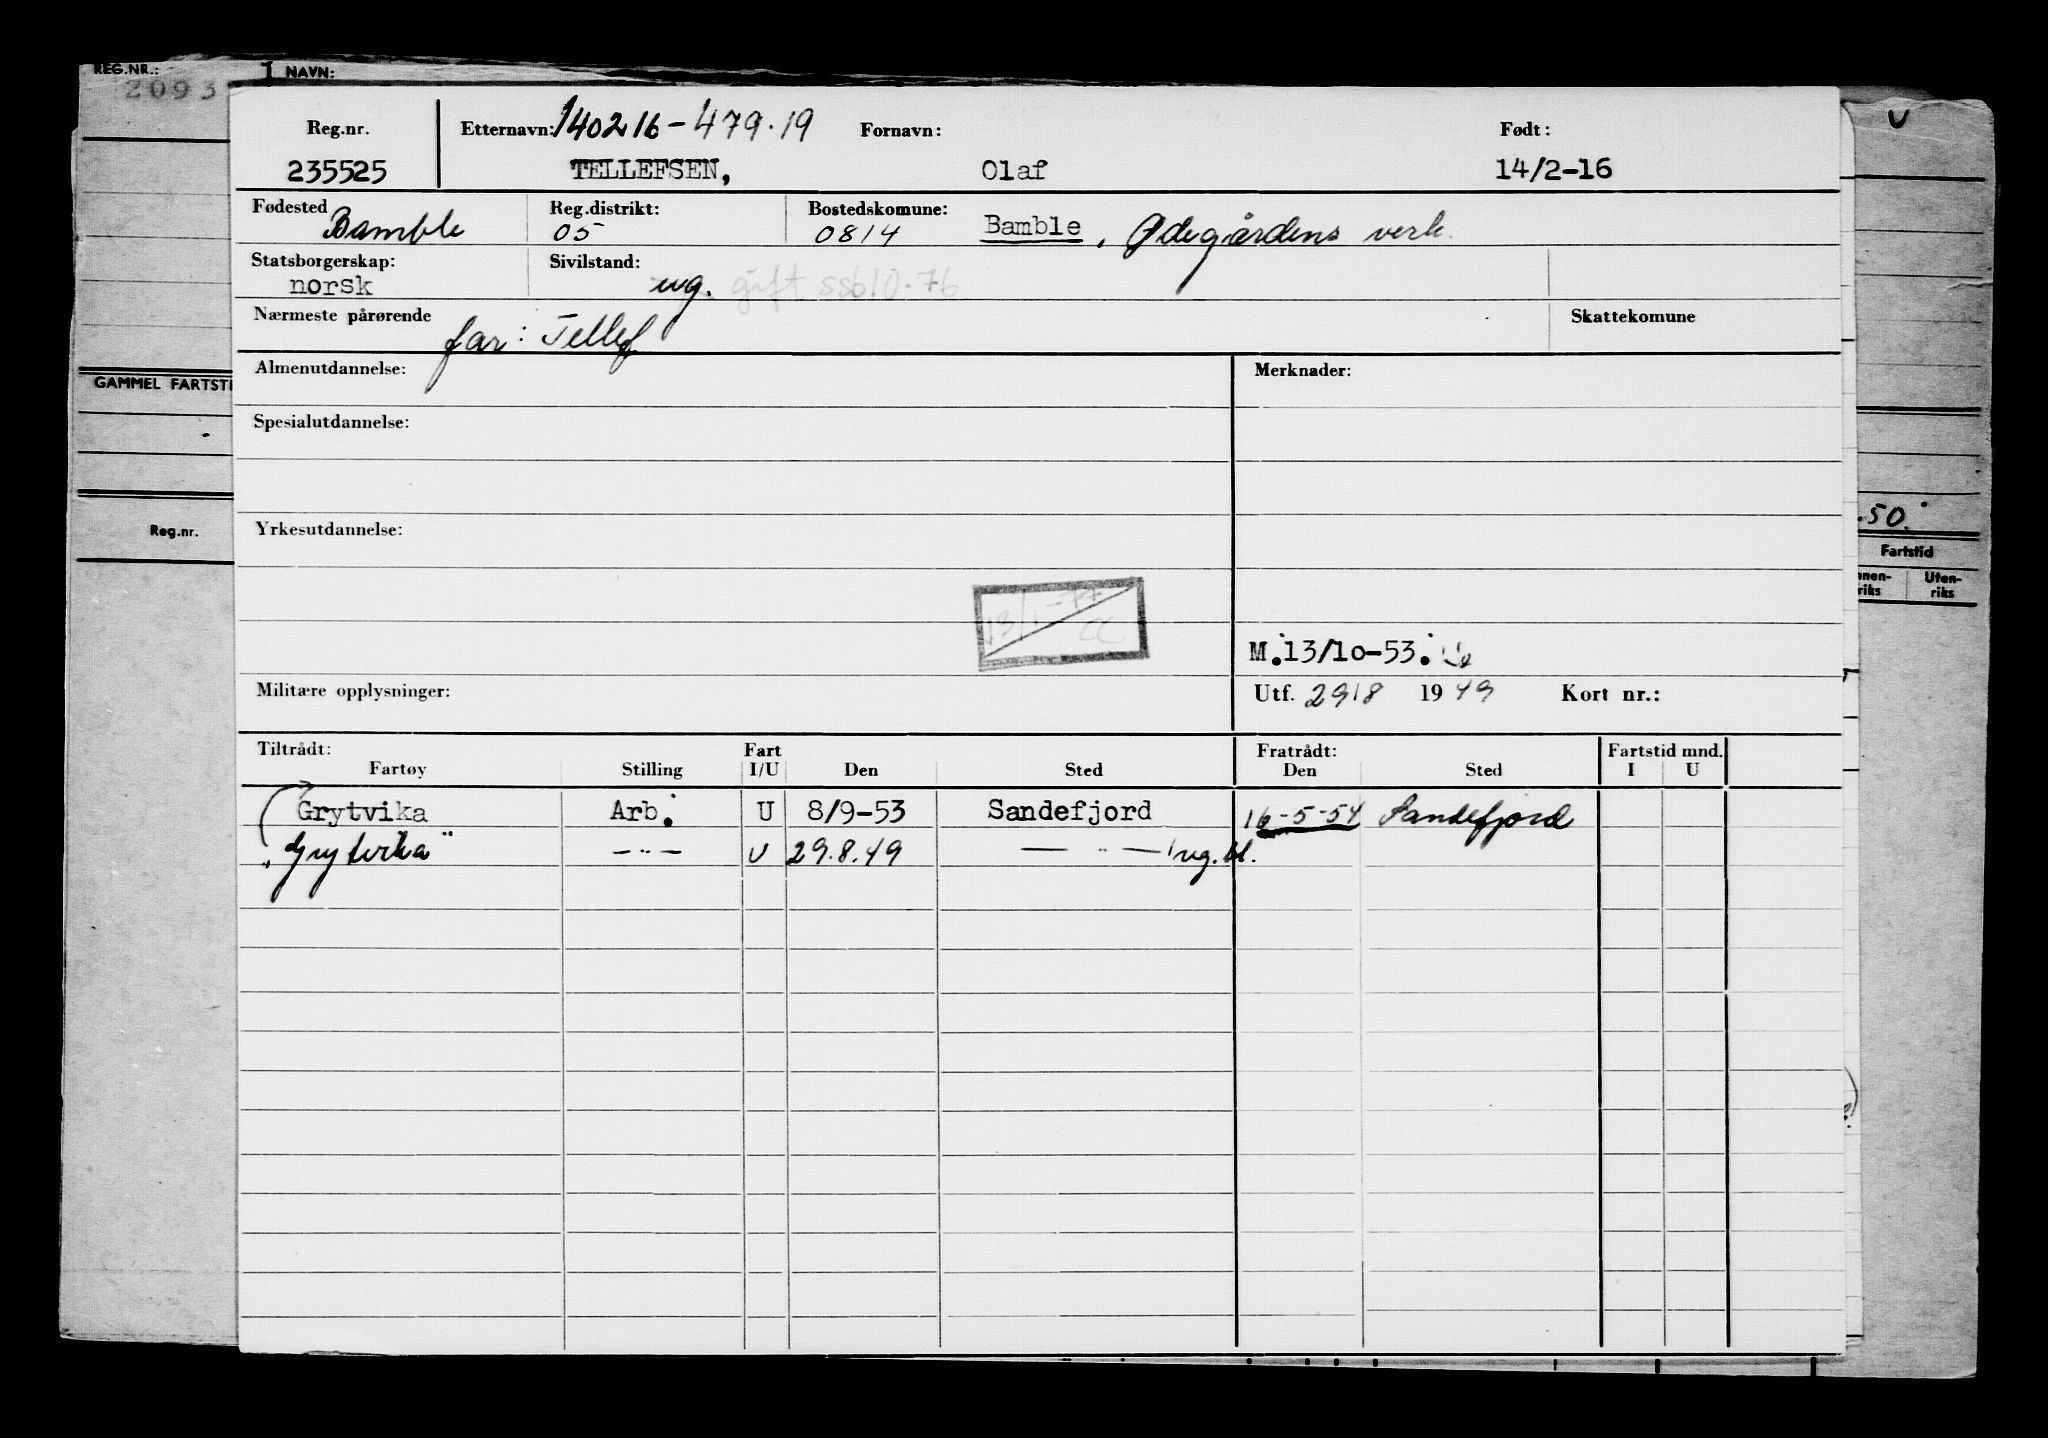 REG.NR.: NAVN:
2093
Reg.nr. Etternavn: 140216-479.19 Fornavn: Født:
235525 TELLEFSEN, Olaf 14/2-16
Fødested Reg.distrikt: Bostedskomune:
Bamble 05 0814 Bamble, Ødegårdens verk.
Statsborgerskap: Sivilstand:
norsk ug. gift ssb10.76
Nærmeste pårørende Skattekomune
far: Tellef
GAMMEL FARTSTI
Almenutdannelse: Merknader:
Spesialutdannelse:
Reg.nr. Yrkesutdannelse: .50.
Fartstid
nnen- Uten-
riks riks
13/1-77
CC
M.13/10-53.
Militære opplysninger: Utf. 29/8 1949 Kort nr.:
Tiltrådt: Fart Fratrådt: Fartstid mnd.
Fartøy Stilling I/U Den Sted Den Sted I U
Grytvika Arb. U 8/9-53 Sandefjord 16-5-54 Sandefjord
"Grytvika" -"- U 29.8.49 -"-